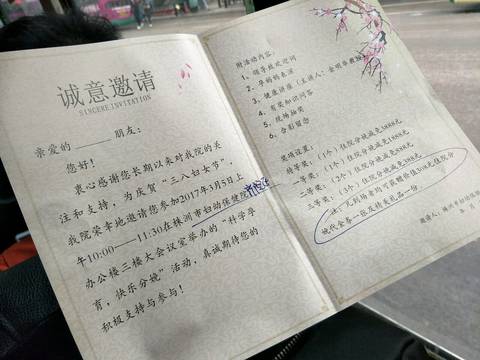 诚意邀请
SINCERE INVITATION
亲爱的 朋友：
您好！
衷心感谢您长期以来对我院的关
注和支持，为庆贺“三八妇女节”，
我院荣幸地邀请您参加2017年3月5上
午10:00——11:30在株洲市妇幼保健院
办公楼三楼大会议室举办的“科学孕
育，快乐分娩”活动，真诚期待您的
积极支持与参与！
附活动内容：
1、领导致欢迎词
2、孕妈妈表演
3、健康讲座（主讲人：
4、有奖知识问答
5、现场抽奖
6、合影留念
奖项设置：
特等奖：（1个）住院分娩减免
一等奖：（1个）住院分娩减免
二等奖：（2个）住院分娩减免
三等奖：（3个）住院分娩减免
注：凡到场者均可获赠价值50元住院分
娩代金券一张及精美礼品一份
邀请人：株洲市妇幼保健
年 月